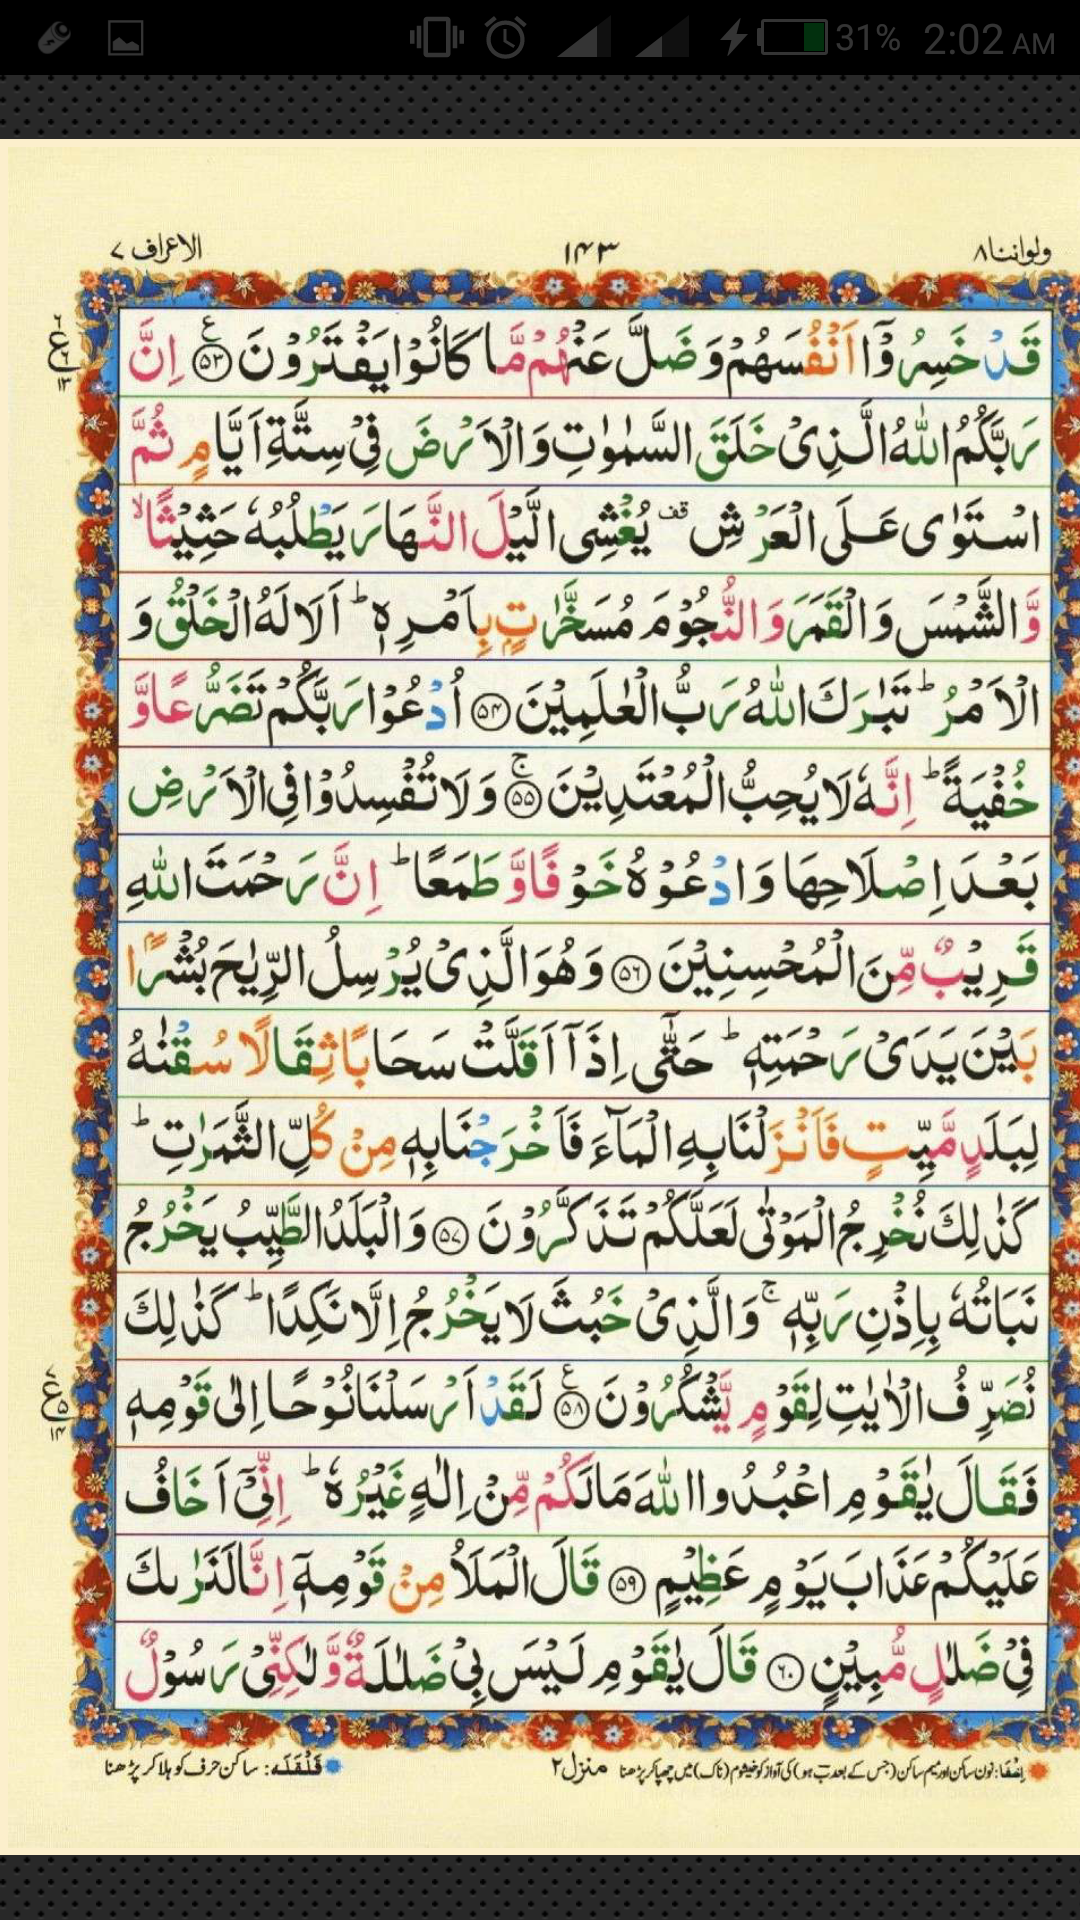 31% 2:02 AM
ولواننا ٨ ١٤٣ الاعراف ٧
قَدْ خَسِرُوْۤا اَنْفُسَهُمْ وَضَلَّ عَنْهُمْ مَّا كَانُوْا يَفْتَرُوْنَ ﴿۵۳﴾ اِنَّ
رَبَّكُمُ اللّٰهُ الَّذِیْ خَلَقَ السَّمٰوٰتِ وَالْاَرْضَ فِیْ سِتَّةِ اَیَّامٍ ثُمَّ
اسْتَوٰی عَلَی الْعَرْشِ قف یُغْشِی الَّیْلَ النَّهَارَ یَطْلُبُهٗ حَثِیْثًا ۙ
وَّالشَّمْسَ وَالْقَمَرَ وَالنُّجُوْمَ مُسَخَّرٰتٍۭ بِاَمْرِهٖ ؕ اَلَا لَهُ الْخَلْقُ وَ
الْاَمْرُ ؕ تَبٰرَكَ اللّٰهُ رَبُّ الْعٰلَمِیْنَ ﴿۵۴﴾ اُدْعُوْا رَبَّكُمْ تَضَرُّعًا وَّ
خُفْیَةً ؕ اِنَّهٗ لَا یُحِبُّ الْمُعْتَدِیْنَ ﴿۵۵﴾ۚ وَلَا تُفْسِدُوْا فِی الْاَرْضِ
بَعْدَ اِصْلَاحِهَا وَادْعُوْهُ خَوْفًا وَّطَمَعًا ؕ اِنَّ رَحْمَتَ اللّٰهِ
قَرِیْبٌ مِّنَ الْمُحْسِنِیْنَ ﴿۵۶﴾ وَهُوَ الَّذِیْ یُرْسِلُ الرِّیٰحَ بُشْرًۢا
بَیْنَ یَدَیْ رَحْمَتِهٖ ؕ حَتّٰۤی اِذَاۤ اَقَلَّتْ سَحَابًا ثِقَالًا سُقْنٰهُ
لِبَلَدٍ مَّیِّتٍ فَاَنْزَلْنَا بِهِ الْمَآءَ فَاَخْرَجْنَا بِهٖ مِنْ كُلِّ الثَّمَرٰتِ ؕ
كَذٰلِكَ نُخْرِجُ الْمَوْتٰی لَعَلَّكُمْ تَذَكَّرُوْنَ ﴿۵۷﴾ وَالْبَلَدُ الطَّیِّبُ یَخْرُجُ
نَبَاتُهٗ بِاِذْنِ رَبِّهٖ ۚ وَالَّذِیْ خَبُثَ لَا یَخْرُجُ اِلَّا نَكِدًا ؕ كَذٰلِكَ
نُصَرِّفُ الْاٰیٰتِ لِقَوْمٍ یَّشْكُرُوْنَ ﴿۵۸﴾ لَقَدْ اَرْسَلْنَا نُوْحًا اِلٰی قَوْمِهٖ
فَقَالَ یٰقَوْمِ اعْبُدُوا اللّٰهَ مَا لَكُمْ مِّنْ اِلٰهٍ غَیْرُهٗ ؕ اِنِّیْۤ اَخَافُ
عَلَیْكُمْ عَذَابَ یَوْمٍ عَظِیْمٍ ﴿۵۹﴾ قَالَ الْمَلَاُ مِنْ قَوْمِهٖۤ اِنَّا لَنَرٰىكَ
فِیْ ضَلٰلٍ مُّبِیْنٍ ﴿۶۰﴾ قَالَ یٰقَوْمِ لَیْسَ بِیْ ضَلٰلَةٌ وَّلٰكِنِّیْ رَسُوْلٌ
اِخفَا: نون ساکن اور میم ساکن (جس کے بعد ب ہو) کی آواز کو خیشوم (ناک) میں چھپا کر پڑھنا منزل ٢ قَلْقَلَه: ساکن حرف کو ہلا کر پڑھنا
ع ٦ ١٣
ع ٥ ١٤